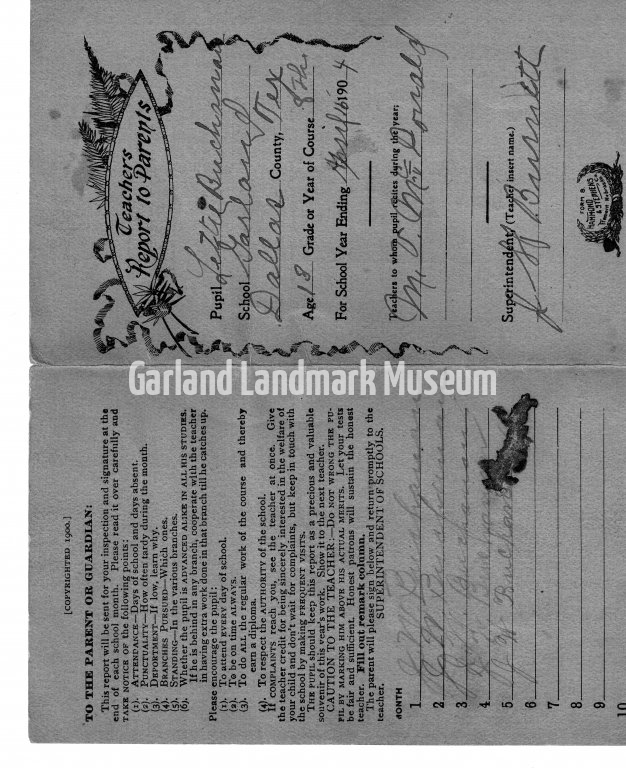 Teachers
Report to Parents
Pupil Lettie Buchanan
School Garland
Dallas County, Tex
Age 18 Grade or Year of Course 8th
For School Year Ending April 16 1904
Teachers to whom pupil recites during the year;
M. O. McDonald
Superintendent (Teacher insert name.)
Burnett
FORM B.
HAMMOND
& STEPHENS
Garland Landmark Museum
[COPYRIGHTED 1900.]
TO THE PARENT OR GUARDIAN:
This report will be sent for your inspection and signature at the
end of each school month. Please read it over carefully and
TAKE NOTICE of the following points:
(1). ATTENDANCE—Days of school and days absent.
(2). PUNCTUALITY—How often tardy during the month.
(3). DEPORTMENT—If low, learn why.
(4). BRANCHES PURSUED—Which ones.
(5). STANDING—In the various branches.
(6). Whether the pupil is ADVANCED ALIKE IN ALL HIS STUDIES.
If he is behind in any branch, cooperate with the teacher
in having extra work done in that branch till he catches up.
Please encourage the pupil:
(1). To attend EVERY day of school.
(2). To be on time ALWAYS.
(3). To do ALL the regular work of the course and thereby
earn a diploma.
(4). To respect the AUTHORITY of the school.
If COMPLAINTS reach you, see the teacher at once. Give
the teacher credit for being sincerely interested in the welfare of
your child and don't wait for complaints, but keep in touch with
the school by making FREQUENT VISITS.
THE PUPIL should keep this report as a precious and valuable
souvenir of this year's work. Show it to the next teacher.
CAUTION TO THE TEACHER:—DO NOT WRONG THE PU-
PIL BY MARKING HIM ABOVE HIS ACTUAL MERITS. Let your tests
be fair and sufficient. Honest patrons will sustain the honest
teacher. Fill out remark column.
The parent will please sign below and return promptly to the
teacher. SUPERINTENDENT OF SCHOOLS.
MONTH
1
2
3
4
5
6
7
8
9
10